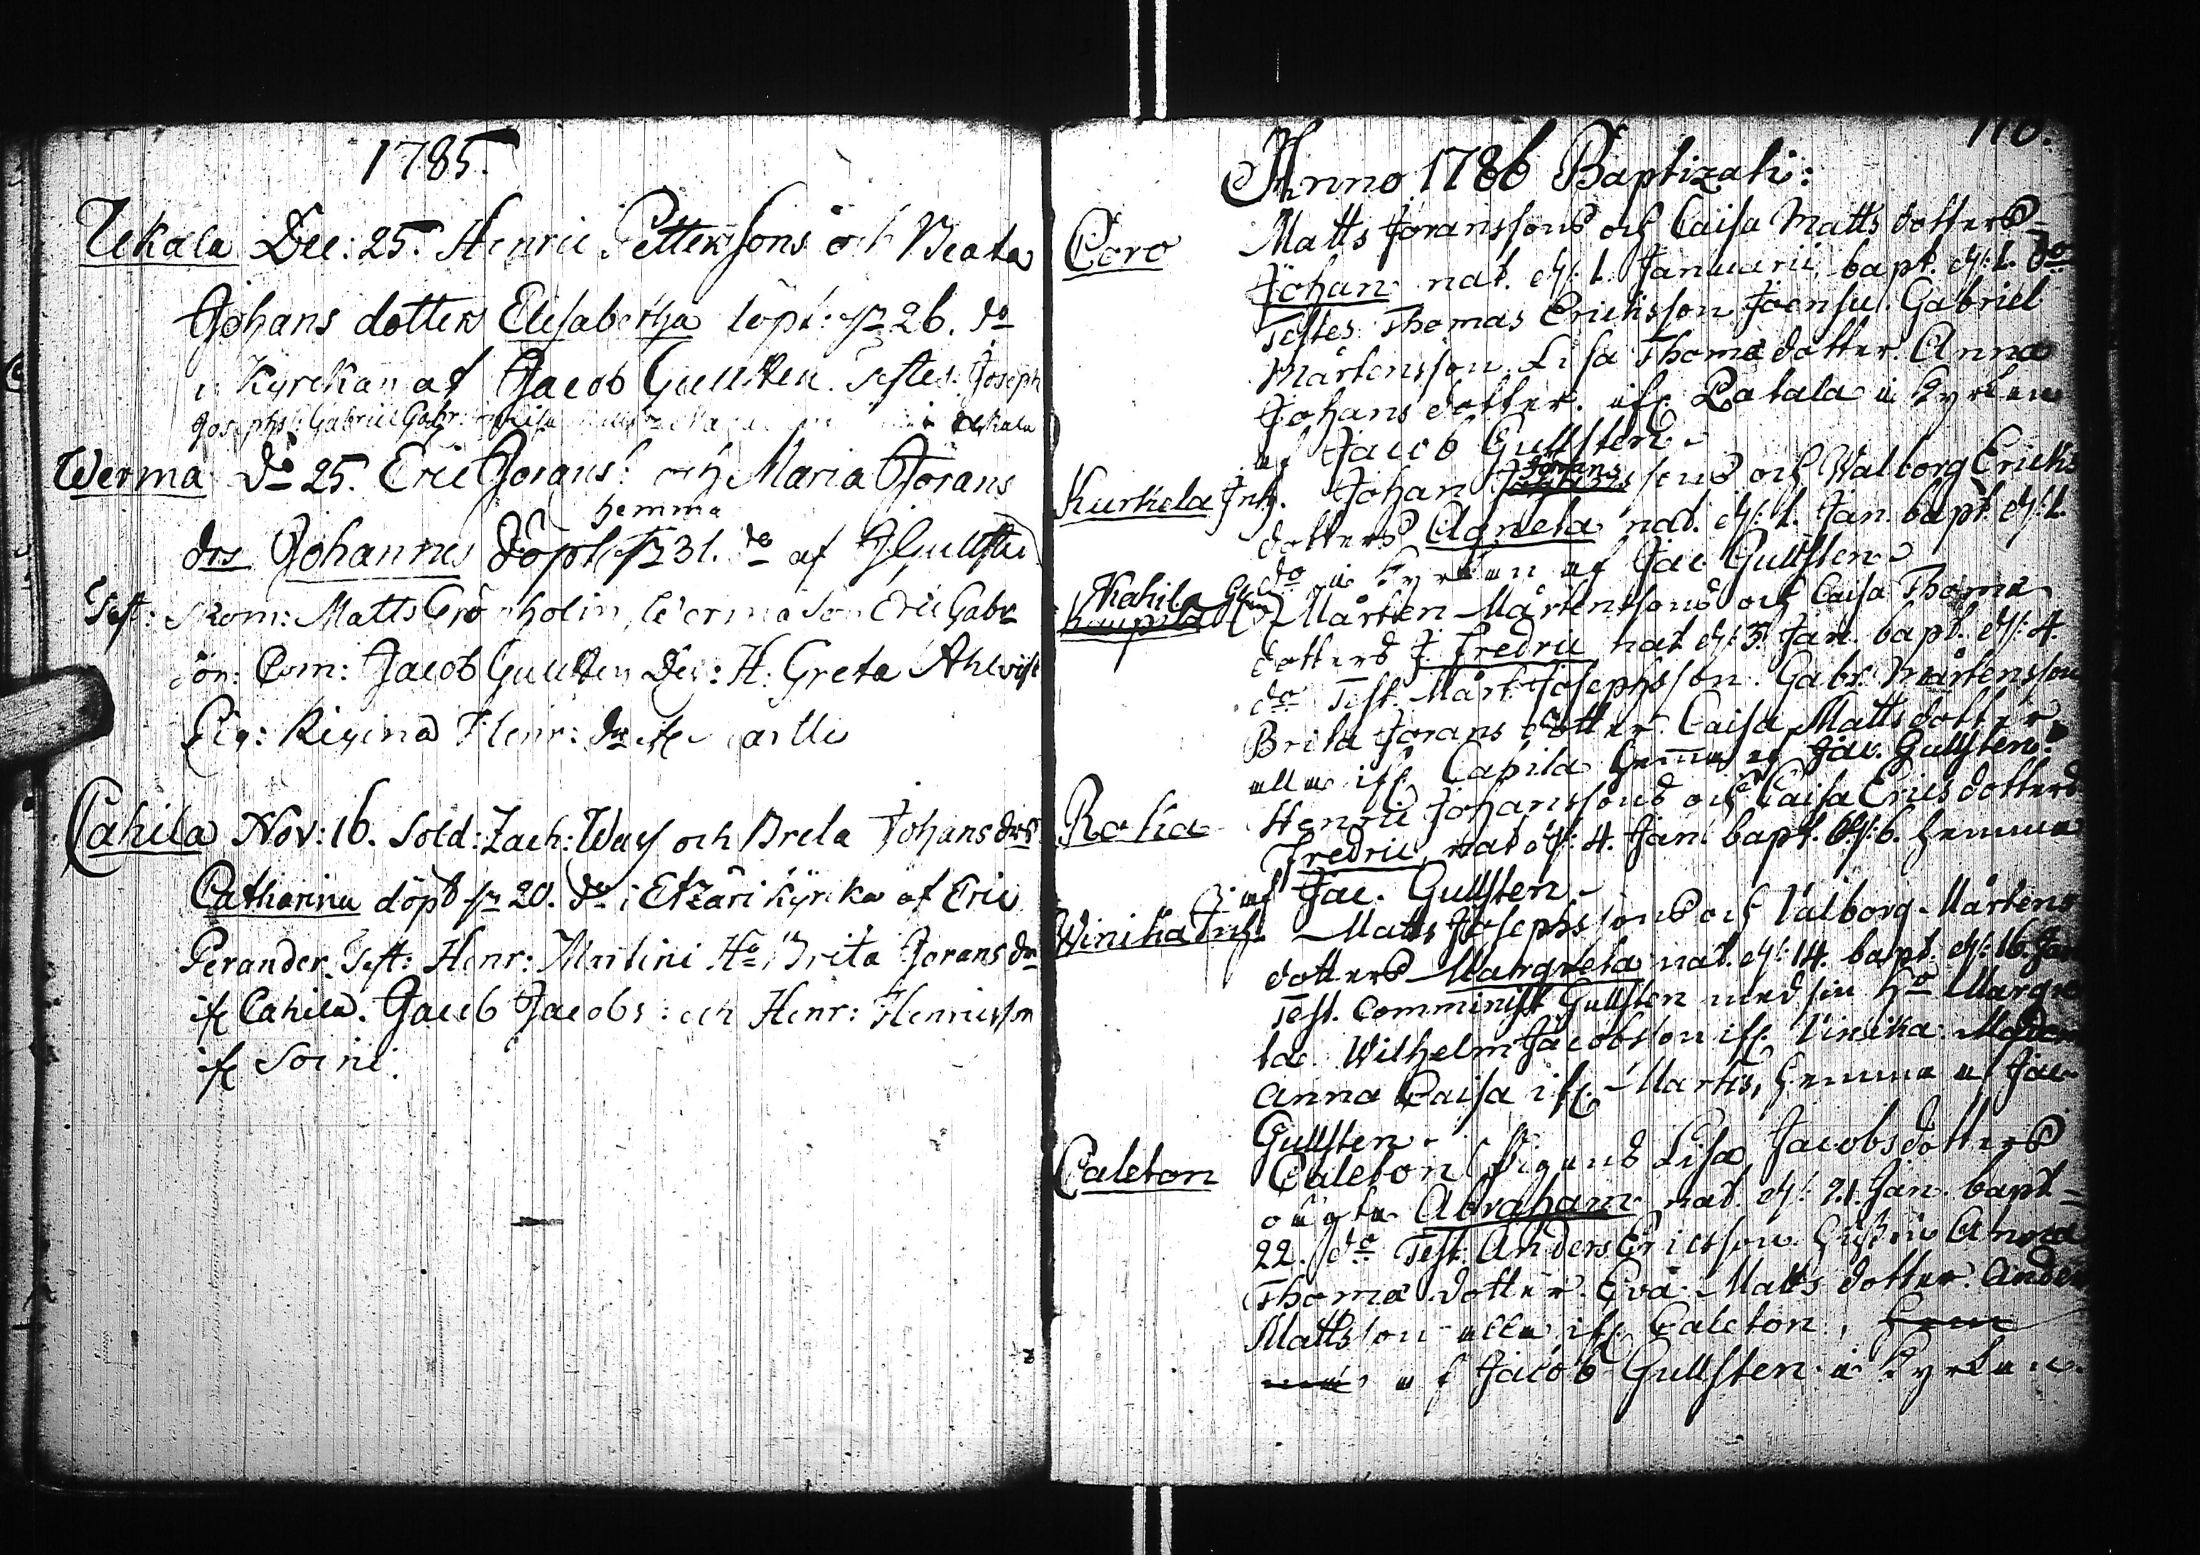 1785.
Ukala Dec: 25. Henric Petterssons och Beata
Johans dotters Elisabetha döpt: 26. do
i Kyrckan af Jacob Gullsten. Testes: Joseph
Josephs: Gabriel Gabr: Ukala
Werma do 25. Eric Jörans: och Maria Jörans
hemma
drs Johannes döpt 31. do af J Gullsten
Test: Kom: Matts Grönholm, Werma Eric Gabr
Com: Jacob Gullsten H: Greta Ahlqvist
Pig: Regina Henr: dr
Cahila Nov: 16. Sold: Zach: Way och Breta Johans drs
Catharina döpt 20. do i Etzäri kyrka af Eric
Perander. Test: Henr: Martini Ho Brita Jörans dr
Cahila. Jacob Jacobs: och Henr: Henricsson
Soini.
110.
Anno 1786 Baptizati:
Coro Matts Jöranssons och Caisa Matts dotters
Johan nat. d: 1. Januarii, bapt. d: 1. do
Testes Thomas Ericksson Joensu. Gabriel
Mårtensson, Lisa Thomædotter. Anna
Johans dotter. ifr. Patala i Kyrkan
af Jacob Gullsten.
Jörans
Kurkela Inh. Johan sons och Walborg Ericks
dotters Agneta nat. d: 1. Jan. bapt. d: 1.
do i Kyrkan af Jac Gullsten
Kahila
Kaupila Mårten Mårtenssons och Caisa Thomæ
dotters J Fredric nat d: 3. Jan. bapt. d: 4.
do Test. Mårt. Josephsson. Gabr. Mårtensson
Brita Jörans dotter. Caisa Matts dotter
alla ifr. Capila hemma af Jac. Gullsten.
Raha Henric Johanssons och Caisa Erics dotters
Fredric, nat d: 4. Jan. bapt. d: 6. hemma
af Jac. Gullsten.
Winika Inh. Matts Josephssons och Valborg Mårtens
dotters Margreta nat. d: 14. bapt. d: 16. Jan
Test. Comminist. Gullsten med sin ho Margre
ta. Wilhelm Jacobsson ifr. Vinika.
Anna Caisa ifr. Martis, hemma af Jac
Gullsten.
Caleton Caleton Pigans Lisa Jacobsdotters
oägta Abraham nat. d: 21. Jan. bapt
22. do Test. Anders Ericsson. hustru Anna
Thomæ dotter. Eva Matts dotter. Anders
Mattsson alla ifr. Caleton, hem
ma af Jacob Gullsten i Kyrkan.